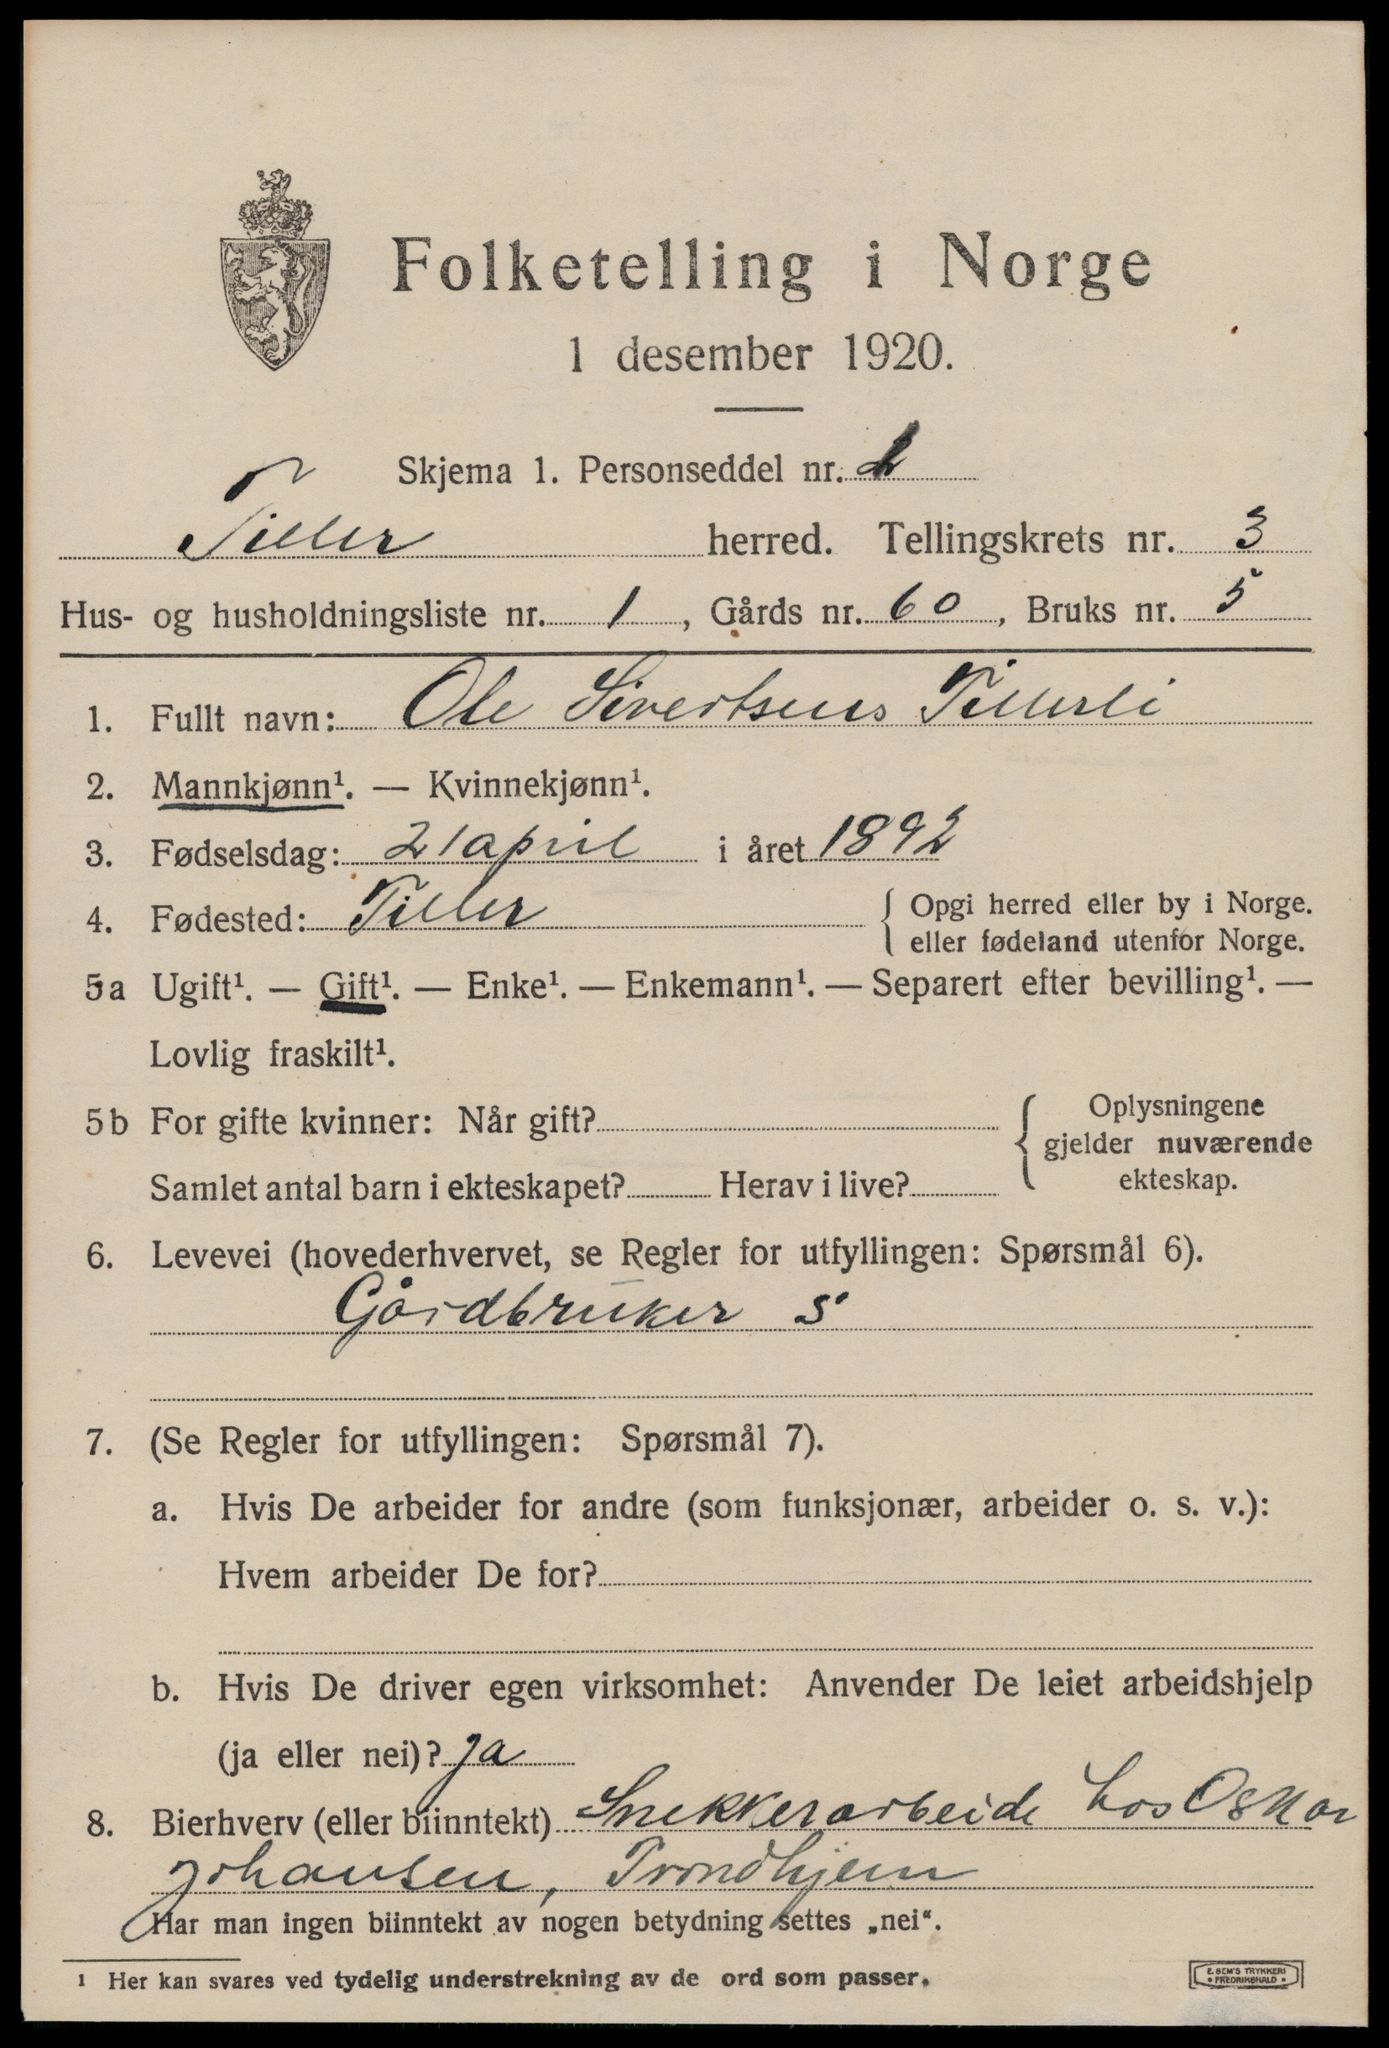 Folketelling i Norge
1 desember 1920.
Skjema 1. Personseddel nr.
Tiller herred. Tellingskrets nr. 3
Hus- og husholdningsliste nr. 1, Gårds nr. 60, Bruks nr. 5
1. Fullt navn: Ole Sivertsens Tillerli
2. Mannkjønn¹. — Kvinnekjønn¹.
3. Fødselsdag: 21 april i året 1892
4. Fødested: Tiller { Opgi herred eller by i Norge.
eller fødeland utenfor Norge.
5a Ugift¹. — Gift¹. — Enke¹. — Enkemann¹. — Separert efter bevilling¹. —
Lovlig fraskilt¹.
5b For gifte kvinner: Når gift?
Samlet antal barn i ekteskapet? Herav i live?
Oplysningene
gjelder nuværende
ekteskap.
6. Levevei (hovederhvervet, se Regler for utfyllingen: Spørsmål 6).
Gårdbruker S
7. (Se Regler for utfyllingen: Spørsmål 7).
a. Hvis De arbeider for andre (som funksjonær, arbeider o. s. v.):
Hvem arbeider De for?
b. Hvis De driver egen virksomhet: Anvender De leiet arbeidshjelp
(ja eller nei)? ja
8. Bierhverv (eller biinntekt) Snekkerarbeide hos Oskar
Johansen, Trondhjem
Har man ingen biinntekt av nogen betydning settes „nei“.
1 Her kan svares ved tydelig understrekning av de ord som passer.
E. SEM'S TRYKKERI
• FREDRIKSHALD •